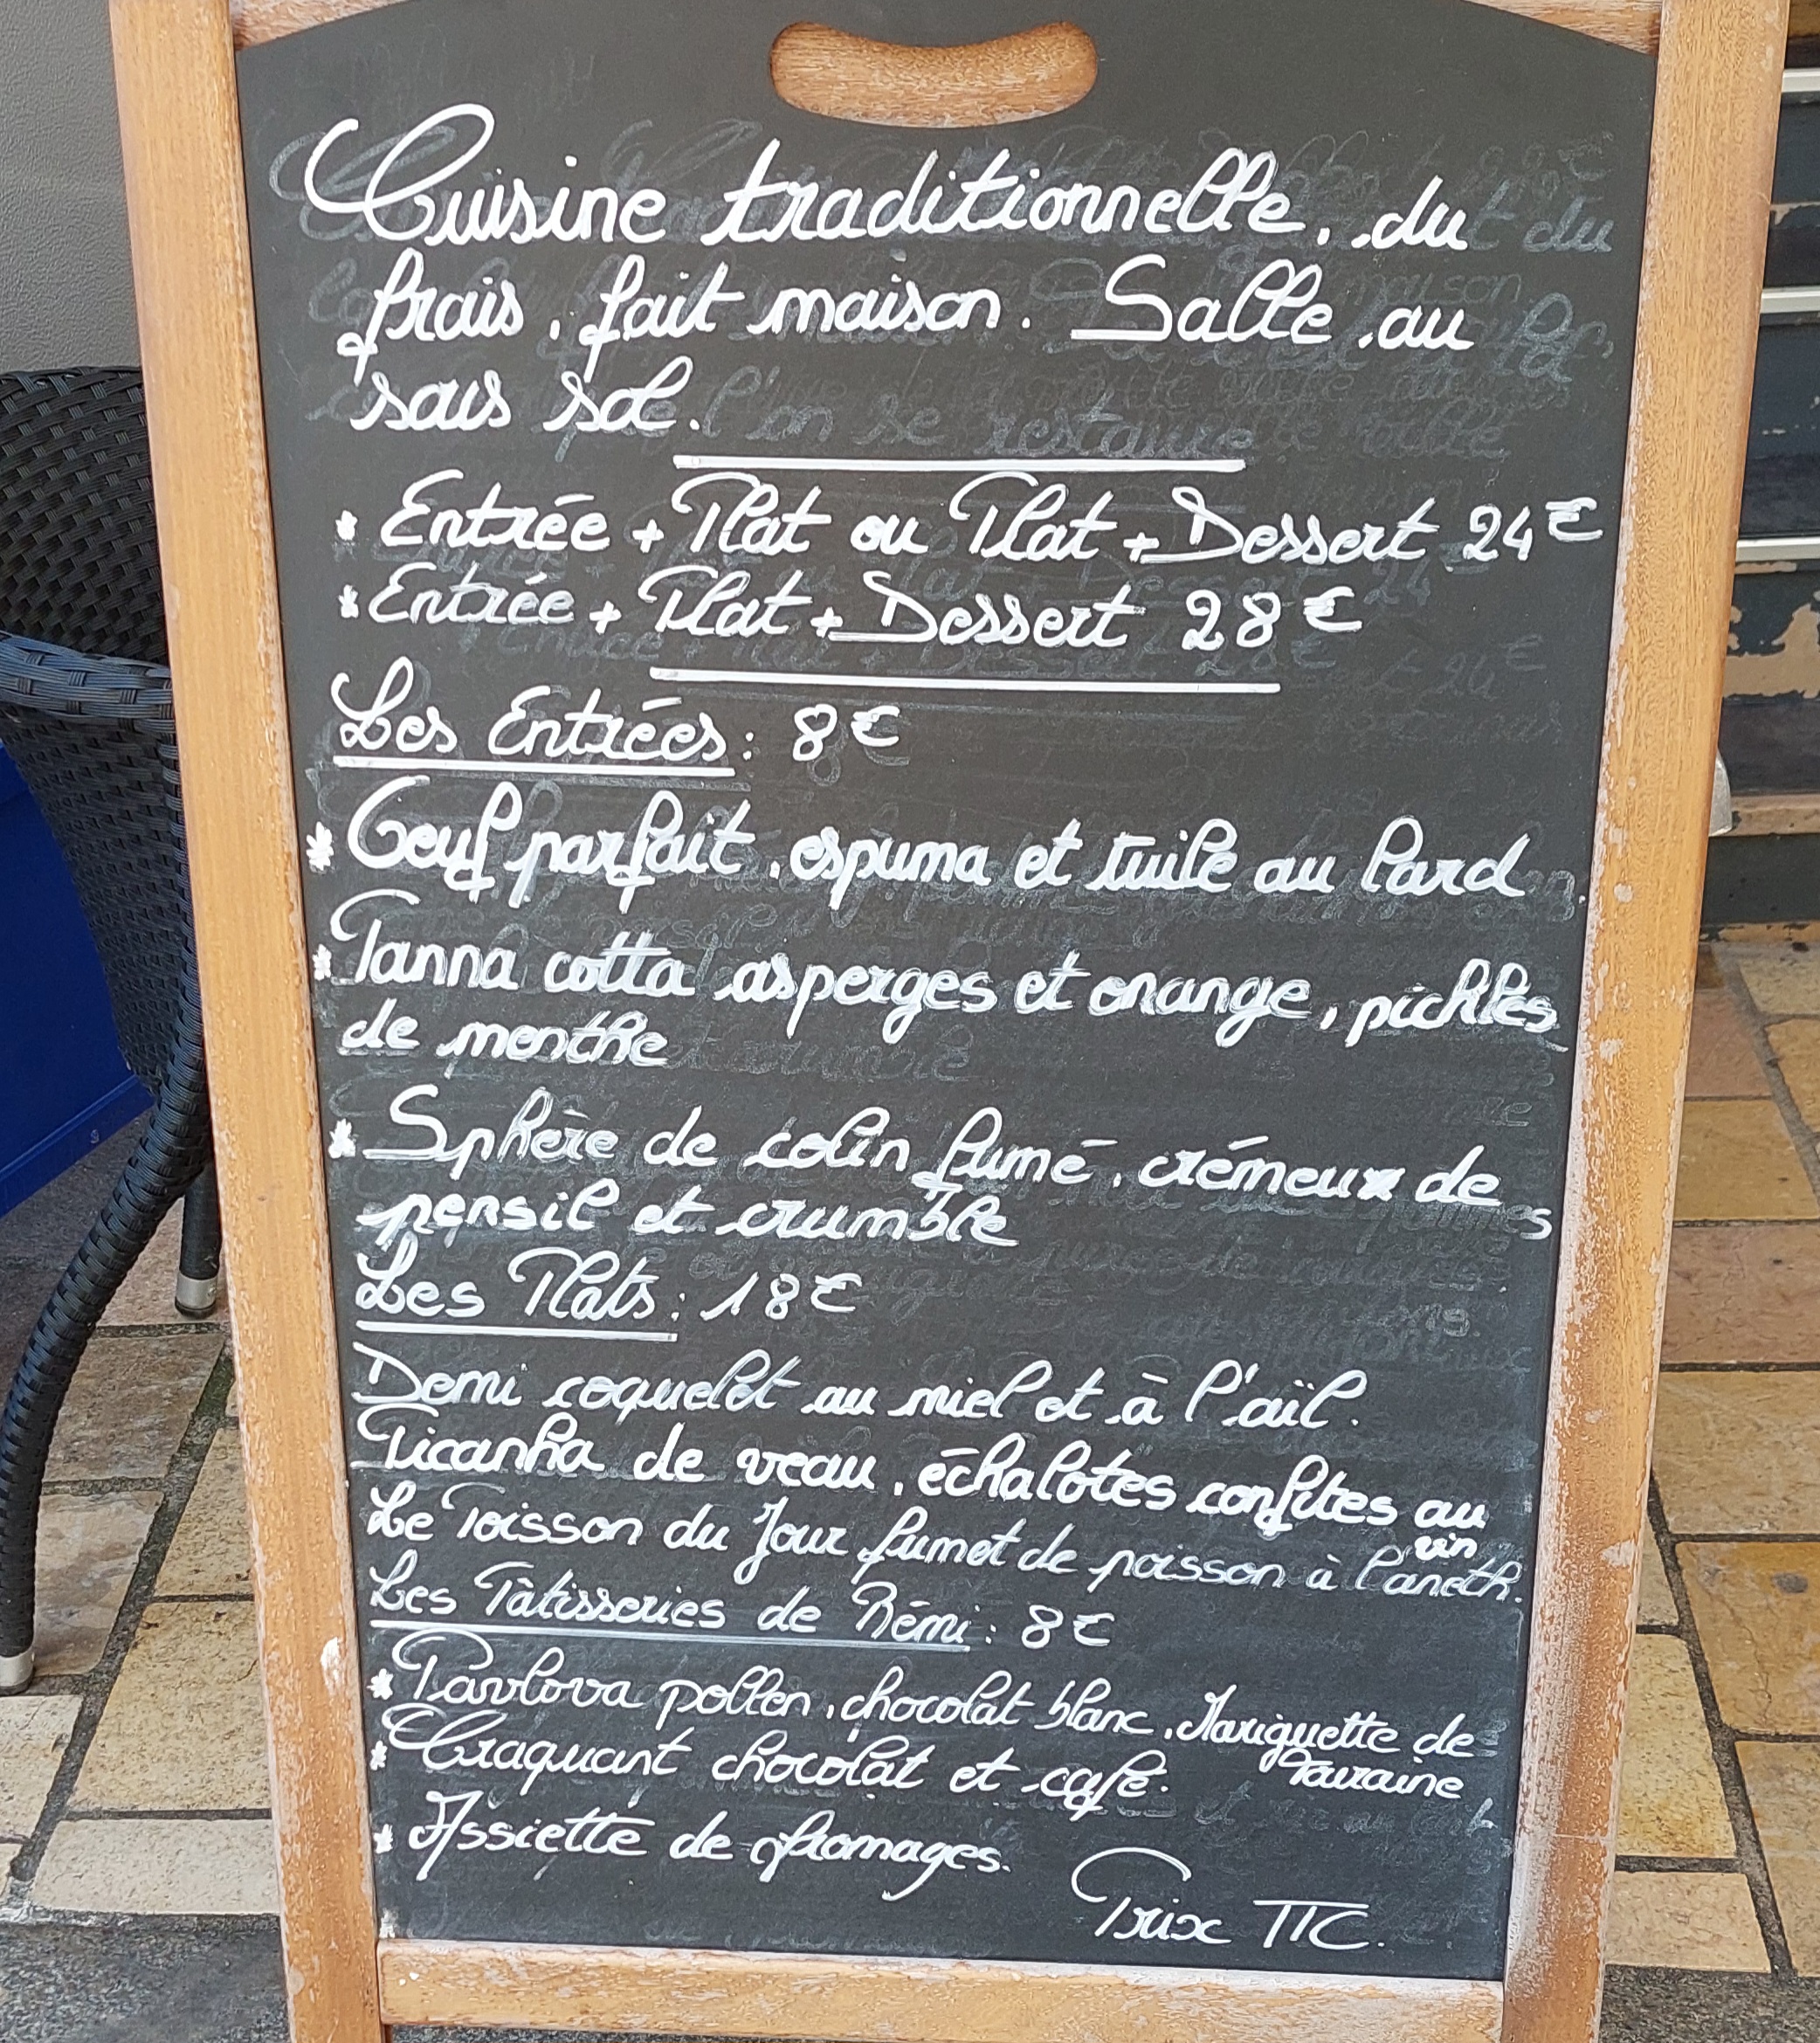 Cuisine traditionnelle, du
frais, fait maison. Salle au
sous sol.
* Entrée + Plat ou Plat + Dessert 24€
* Entrée + Plat + Dessert 28€
Les Entrées : 8€
* Oeuf parfait, espuma et tuile au lard
* Panna cotta asperges et orange, pickles
de menthe
* Sphère de colin fumé, crémeux de
persil et crumble
Les Plats : 18€
Demi coquelet au miel et à l'aïl.
Picanha de veau, échalotes confites au
vin
Le Poisson du Jour fumet de poisson à l'aneth.
Les Pâtisseries de Rémi : 8€
* Pavlova pollen, chocolat blanc, Mariguette de
Touraine
* Craquant chocolat et café.
* Assiette de fromages.
Prix TTC.